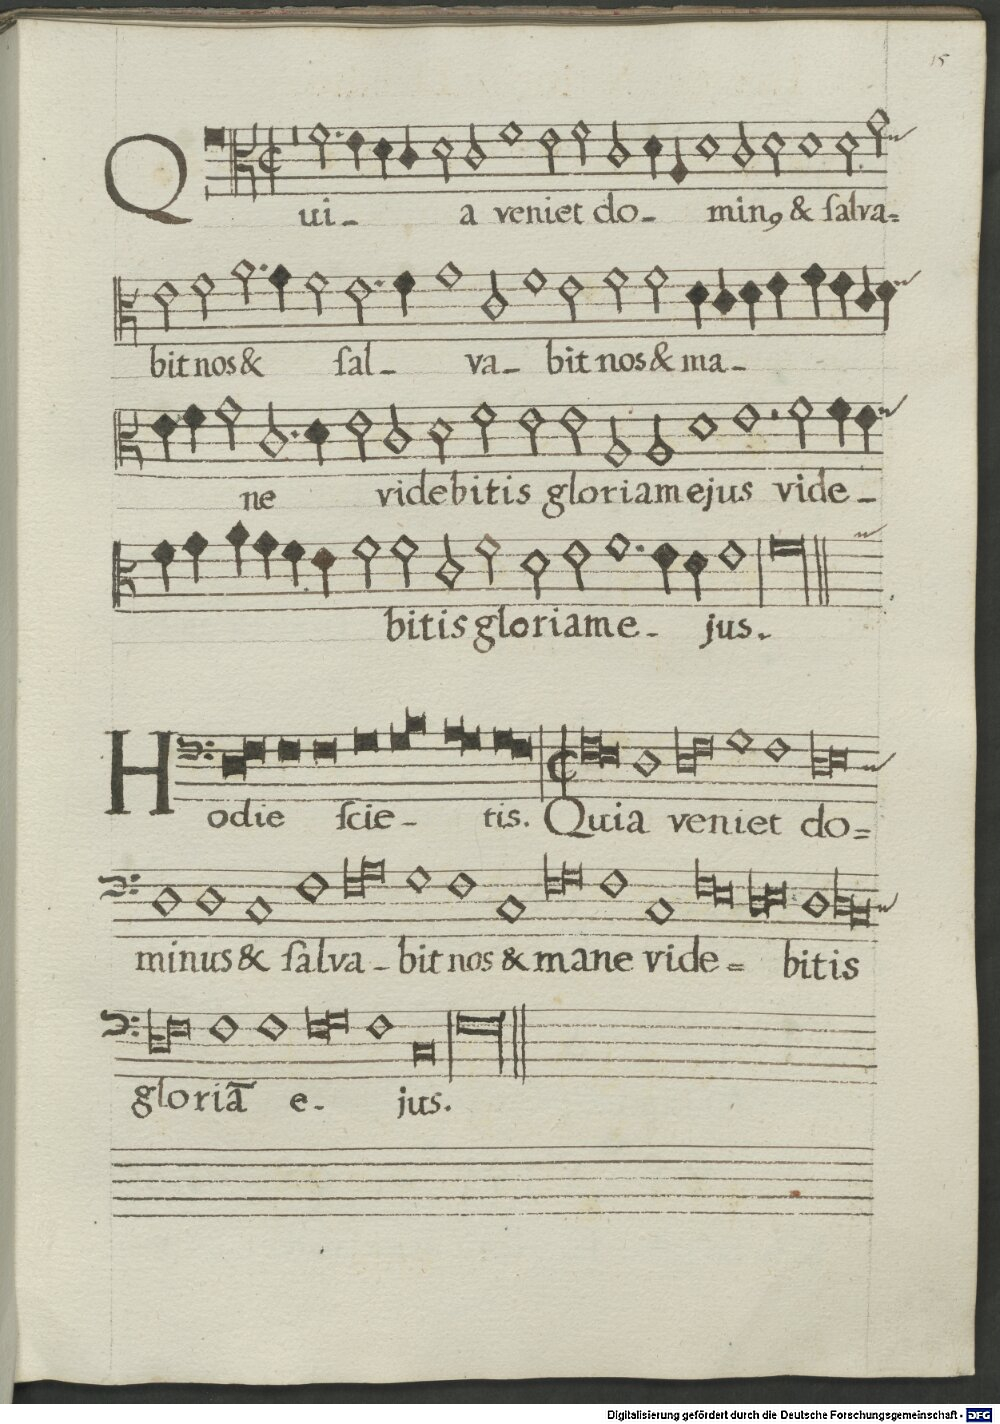 15
Qui_ a veniet do_ min9 & ſalva=
bit nos & ſal_ va_ bit nos & ma_
ne videbitis gloriam ejus vide_
bitis gloriam e_ jus.
Hodie ſcie_ tis. Quia veniet do=
minus & ſalva_ bit nos & mane vide= bitis
gloriā e_ jus.
Digitalisierung gefördert durch die Deutsche Forschungsgemeinschaft - DFG